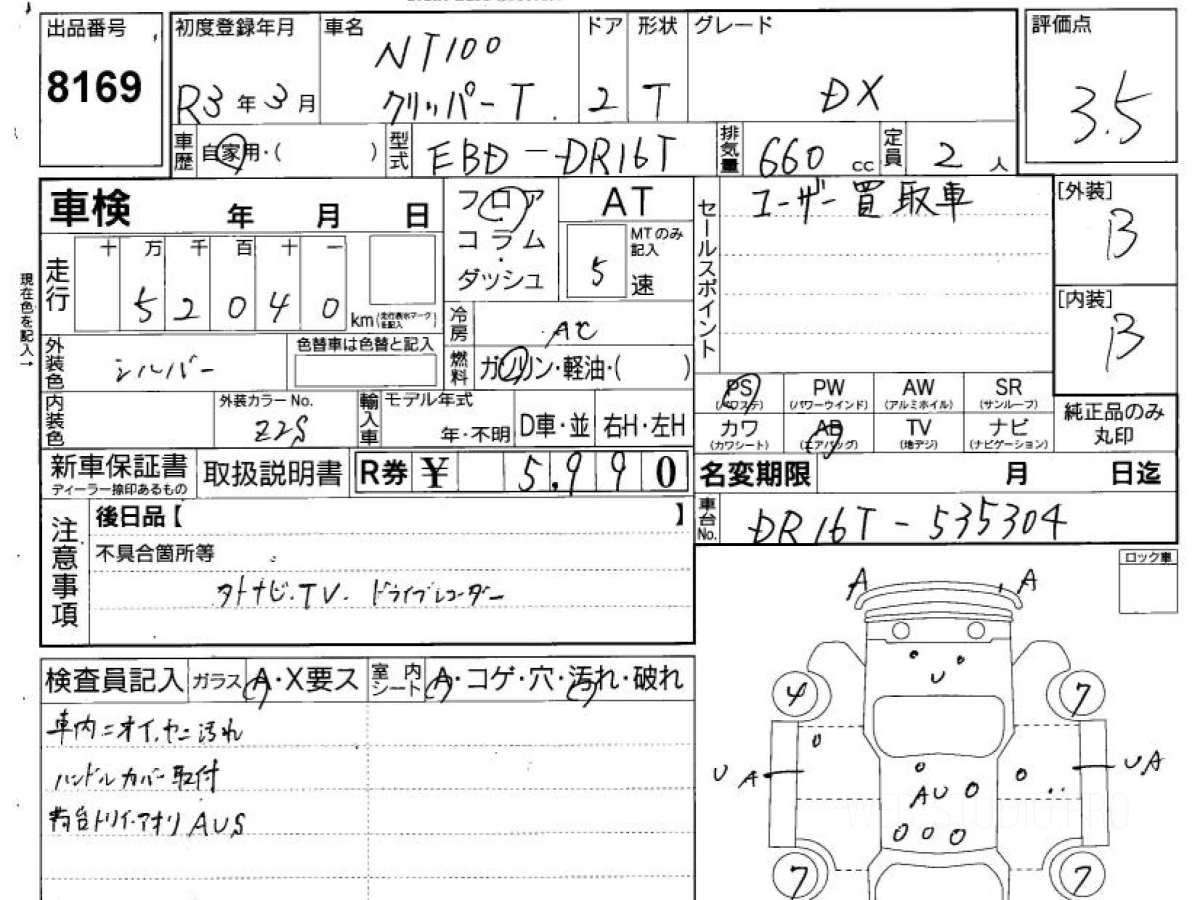 出品番号
8169
初度登録年月
R3年3月
車名
NT100
クリッパーT.
ドア
2
形状
T
グレード
DX
評価点
3.5
車歴
自家用・( )
型式
EBD-DR16T
排気量
660 cc
定員
2人
車検 年 月 日
フロア
コラム
・
ダッシュ
AT
MTのみ
記入
5速
セールスポイント
ユーザー買取車
[外装]
B
[内装]
B
現在色を記入→
走行
十 万 千 百 十 一
5 2 0 4 0
km(走行表示マークを記入)
冷房
AC
外装色
シルバー
色替車は色替と記入
燃料
ガソリン・軽油・( )
内装色
外装カラーNo.
Z2S
輸入車
モデル年式
年・不明
D車・並
右H・左H
PS
(パワステ)
PW
(パワーウインド)
AW
(アルミホイル)
SR
(サンルーフ)
カワ
(カワシート)
AB
(エアバッグ)
TV
(地デジ)
ナビ
(ナビゲーション)
純正品のみ
丸印
新車保証書
ディーラー捺印あるもの
取扱説明書
R券 ¥ 5,990
名変期限 月 日迄
車台No.
DR16T-535304
注意事項
後日品【 】
不具合箇所等
外ナビ・TV・ドライブレコーダー
ロック車
検査員記入
ガラス A・X要ス
室内シート A・コゲ・穴・汚れ・破れ
車内ニオイ、ヤニ汚れ
ハンドルカバー取付
荷台トリイ・アオリ AUS
A A
U
4 7
U A
U A
AU
7 7